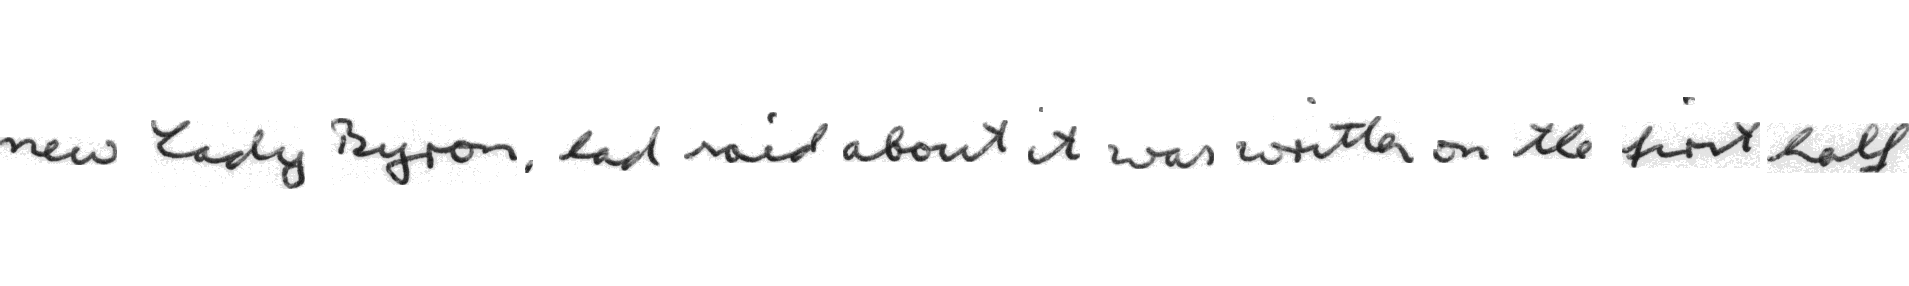 new Lady Byron, had said about it was written on the first half